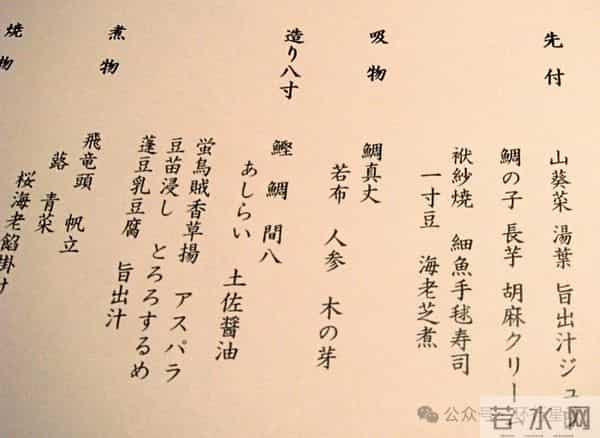 先付
山葵菜 湯葉 旨出汁ジュ
鯛の子 長芋 胡麻クリー
袱紗焼 細魚手毬寿司
一寸豆 海老芝煮
吸物
鯛真丈
若布 人参 木の芽
造り八寸
鰹 鯛 間八
あしらい 土佐醤油
蛍烏賊香草揚 アスパラ
豆苗浸し とろろするめ
蓬豆乳豆腐 旨出汁
煮物
飛竜頭 帆立
蕗 青菜
桜海老餡掛け
焼物
公众号
若水网